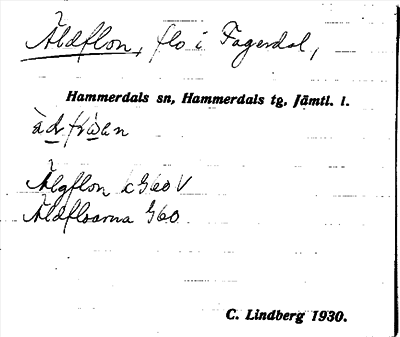 Äldflon, flo i Fagerdal,
Hammerdals sn, Hammerdals tg, Jämtl. l.
Älgflon k G60 V
Äldfloarna G60
C. Lindberg 1930.